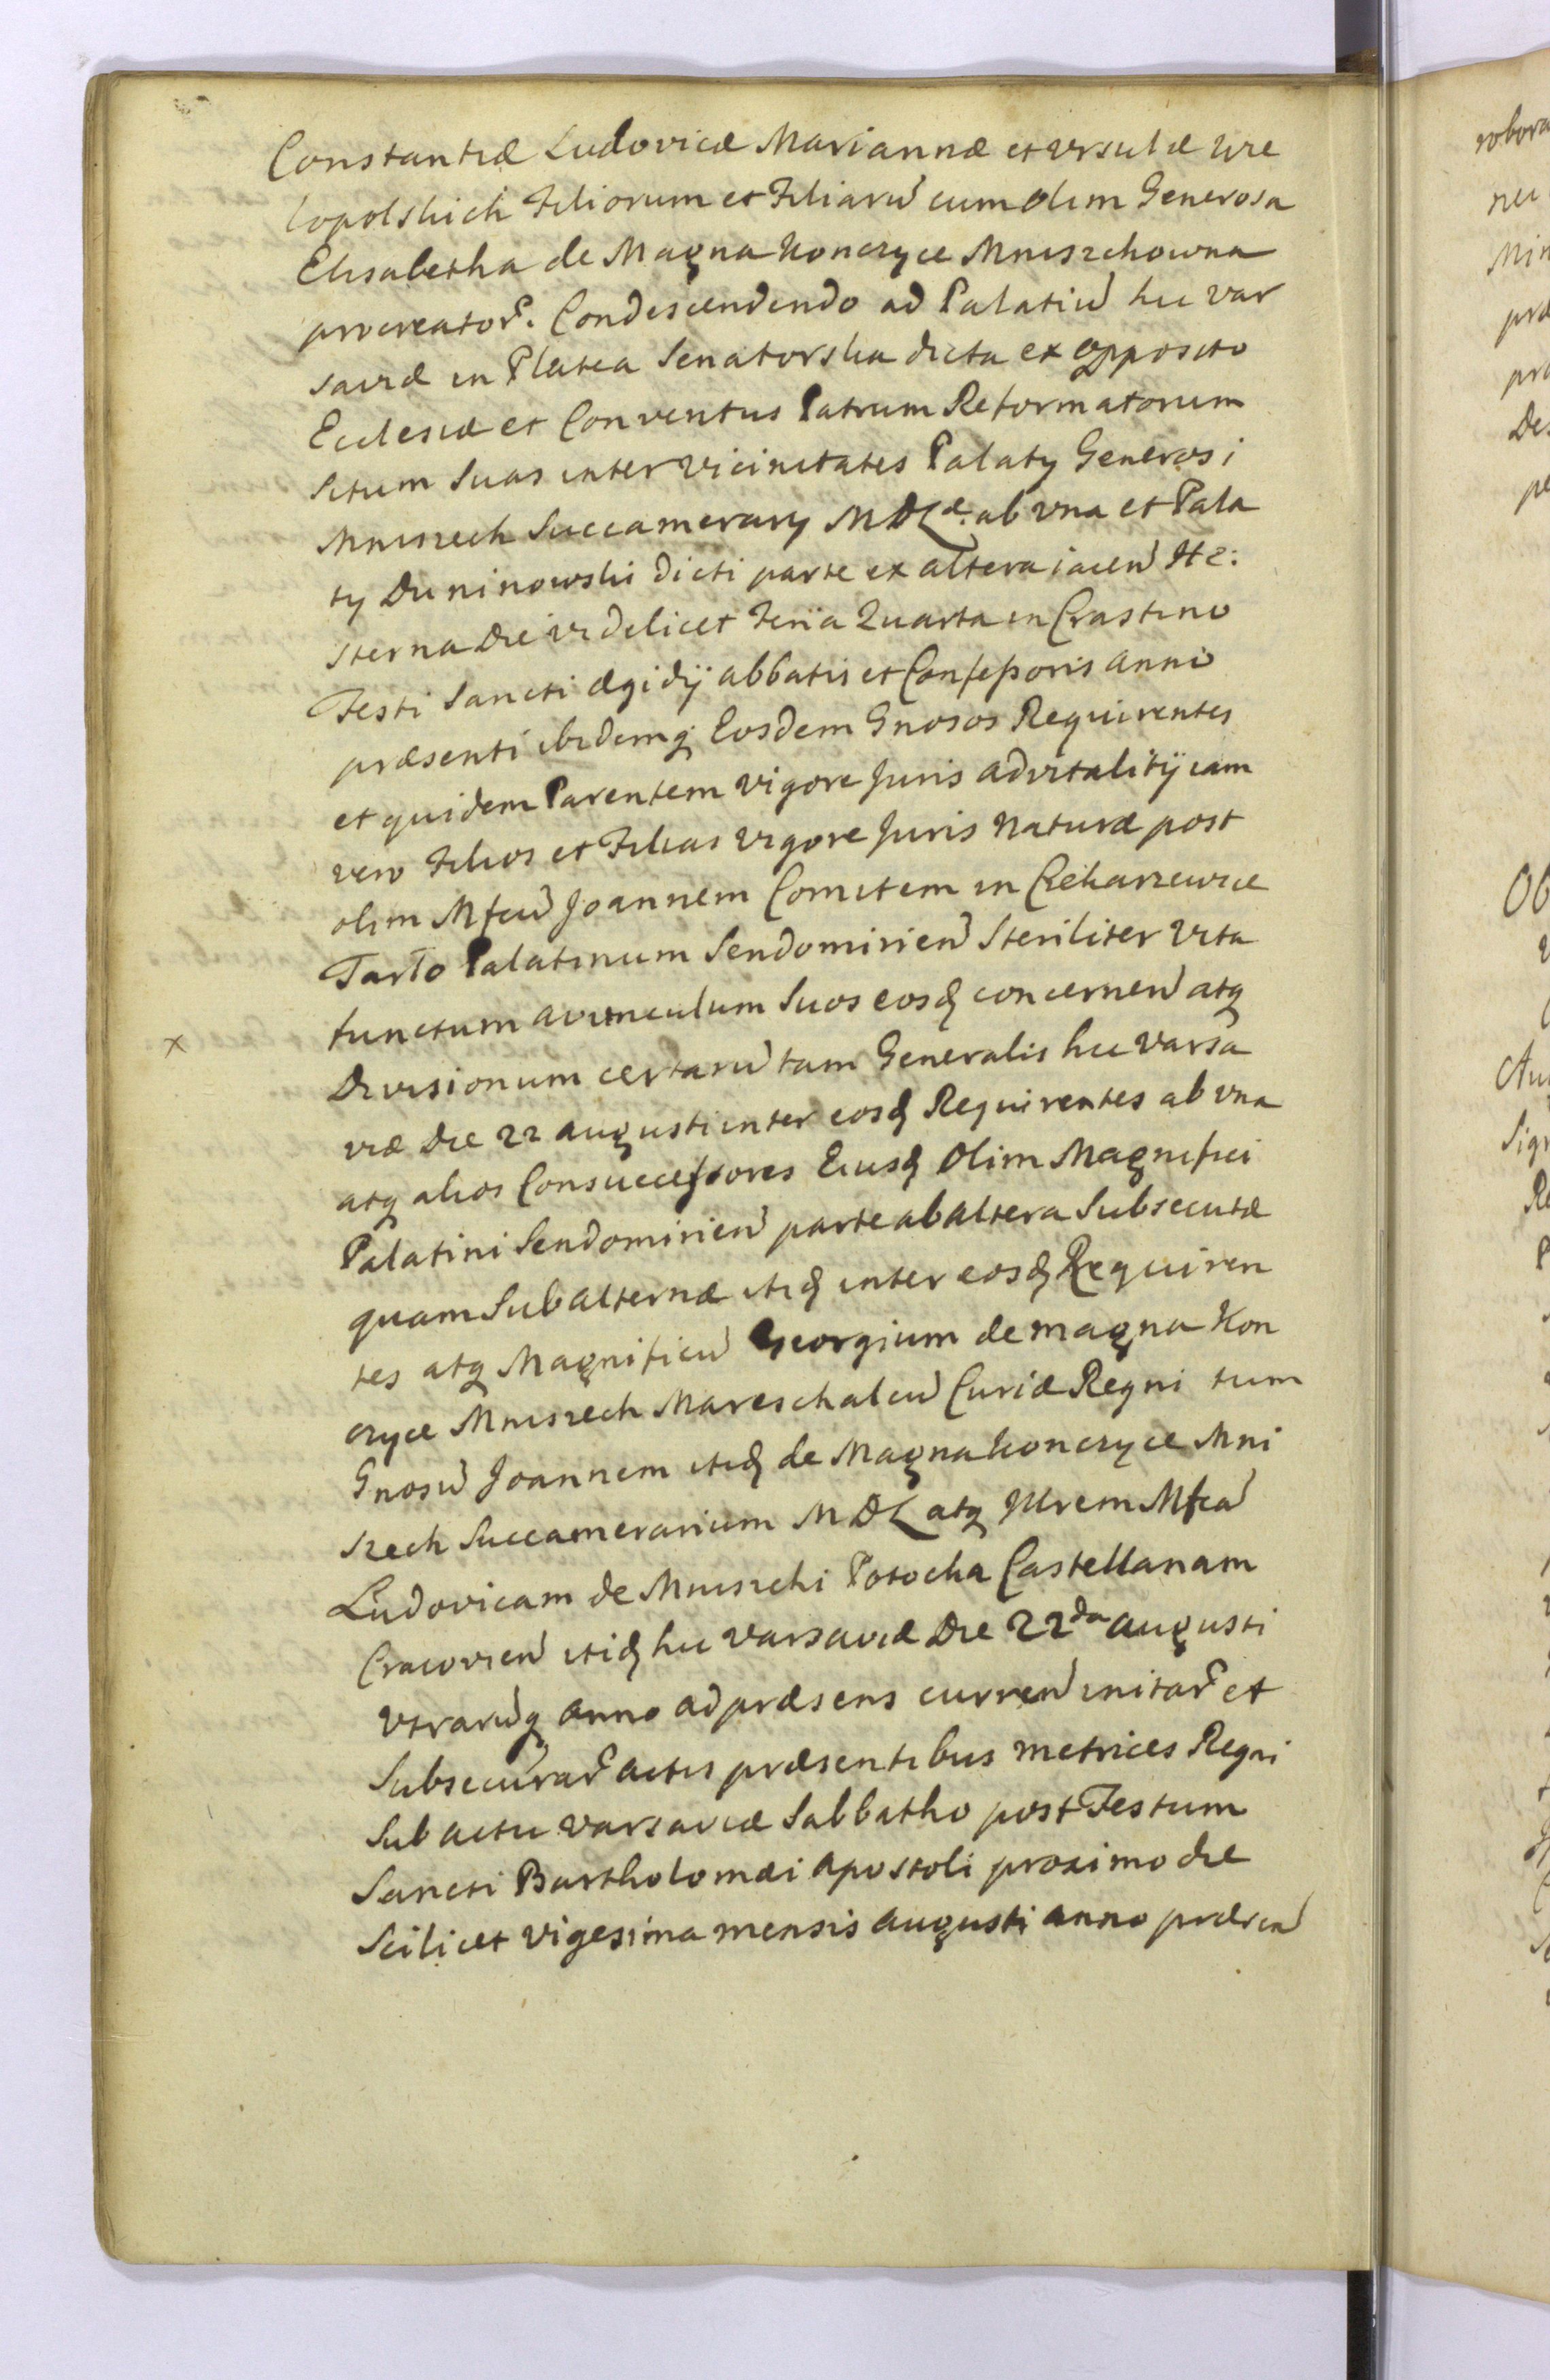 Constantiæ Ludovicæ Mariannæ et Ursulæ Wie
lopolskich Filiorum et Filiarū cum olim Generosa
Elisabetha de Magna Konczyce Mniszchowna
procreator̃. Condescendendo ad Palatiū hic Var
saviæ in Platea Senatorska dicta ex opposito
Ecclesiæ et Conventus Patrum Reformatorum
Situm Suas inter vicinitates Palatÿ Generosi
Mniszech Succamerarÿ MDL æ. ab una et Pala
tÿ Duninowski dicti parte ex altera iacen̄ He:
sterna Die videlicet Feria Quarta in Crastino
Festi Sancti Ægidÿ Abbatis et Confeßoris Anni
præsenti ibidemq̨ Eosdem Gnosos Requirentes
et quidem Parentem vigore Juris advitalitÿ iam
vero Filios et Filias vigore Juris Naturæ post
olim Mfcū Joannem Comitem in Czekarzewice
Tarło Palatinum Sendomirien̄ Steriliter Vita
functum avunculum Suos eosd̨ concernen̄ atq̨
x
Divisionum certarū tam Generalis hic Varsa
viæ Die 22 Augusti inter eosd̨ Requirentes ab una
atq̨ alios Consuccessores Eiusd̨ Olim Magnifici
Palatini Sendomirien̄ parte ab altera Subsecutæ
quam Subalternæ itid̨ inter eosd̨ Requiren
tes atq̨ Magnificū Georgium de magna Kon
czyce Mniszech Mareschalcū Curiæ Regni tum
Gnosū Joannem itid̨ de Magna Konczyce Mni
szech Succamerarium MDL atq̨ Illrem Mfcā
Ludovicam de Mniszchi Potocka Castellanam
Cracovien̄ itid̨ hic Varsaviæ Die 22da Augusti
Utrarūq̨ Anno ad præsens curren̄ initar̃ et
Subsecutar̃ Actis præsentibus metrices Regni
Sub actu Varsaviæ Sabbatho post Festum
Sancti Bartholomæi Apostoli proximo die
Scilicet vigesima mensis Augusti Anno præsen̄